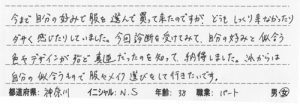 今まで自分の好みで服を選んで買って来たのですが どうもしっくり来なかったり
ダサく感じたりしていました。今回診断を受けてみて、自分の好みと似合う
色やデザインが殆ど真逆だったのを知って、納得しました。次からは
自分の似合うもので服やメイク選びをして行きたいです。
都道府県: 神奈川 イニシャル: N.S 年齢: 38 職業: パート 男・女